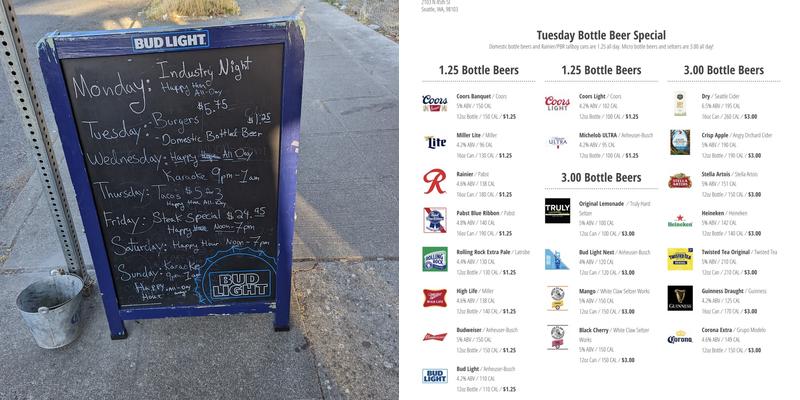 BUD LIGHT
Monday: Industry Night
Happy Hour
All-Day
$5.75
Tuesday: Burgers
$1.25
- Domestic Bottled Beer
Wednesday: Happy Hour All Day
Karaoke 9pm-1am
Thursday: Tacos
Happy Hour All-Day
Friday: Steak Special $24.95
Happy Hour Noon-7pm
Saturday: Happy Hour Noon-7pm
Sunday: Karaoke
Happy All-Day
Hour
BUD
LIGHT
2103 N 45th St
Seattle, WA, 98103
Tuesday Bottle Beer Special
Domestic bottle beers and Rainier/PBR tallboy cans are 1.25 all day. Micro bottle beers and seltzers are 3.00 all day!
1.25 Bottle Beers
Coors Banquet / Coors
5% ABV / 150 CAL
12oz Bottle / 150 CAL / $1.25
Miller Lite / Miller
4.2% ABV / 96 CAL
16oz Can / 130 CAL / $1.25
Rainier / Pabst
4.6% ABV / 138 CAL
16oz Can / 180 CAL / $1.25
Pabst Blue Ribbon / Pabst
4.8% ABV / 140 CAL
16oz Can / 190 CAL / $1.25
Rolling Rock Extra Pale / Latrobe
4.4% ABV / 130 CAL
12oz Bottle / 130 CAL / $1.25
High Life / Miller
4.6% ABV / 138 CAL
12oz Bottle / 140 CAL / $1.25
Budweiser / Anheuser-Busch
5% ABV / 150 CAL
12oz Bottle / 150 CAL / $1.25
Bud Light / Anheuser-Busch
4.2% ABV / 110 CAL
12oz Bottle / 110 CAL / $1.25
1.25 Bottle Beers
Coors Light / Coors
4.2% ABV / 102 CAL
12oz Bottle / 100 CAL / $1.25
Michelob ULTRA / Anheuser-Busch
4.2% ABV / 95 CAL
12oz Bottle / 100 CAL / $1.25
3.00 Bottle Beers
TRULY
Original Lemonade / Truly Hard
Seltzer
5% ABV / 100 CAL
12oz Can / 100 CAL / $3.00
Bud Light Next / Anheuser-Busch
4% ABV / 120 CAL
12oz Can / 120 CAL / $3.00
Mango / White Claw Seltzer Works
5% ABV / 150 CAL
12oz Can / 150 CAL / $3.00
Black Cherry / White Claw Seltzer
Works
5% ABV / 150 CAL
12oz Can / 150 CAL / $3.00
3.00 Bottle Beers
Dry / Seattle Cider
6.5% ABV / 195 CAL
16oz Can / 260 CAL / $3.00
Crisp Apple / Angry Orchard Cider
5% ABV / 190 CAL
12oz Bottle / 190 CAL / $3.00
Stella Artois / Stella Artois
5% ABV / 151 CAL
12oz Bottle / 150 CAL / $3.00
Heineken / Heineken
5% ABV / 142 CAL
12oz Bottle / 140 CAL / $3.00
Twisted Tea Original / Twisted Tea
5% ABV / 210 CAL
12oz Can / 210 CAL / $3.00
Guinness Draught / Guinness
4.2% ABV / 125 CAL
16oz Can / 170 CAL / $3.00
Corona Extra / Grupo Modelo
4.6% ABV / 149 CAL
12oz Bottle / 150 CAL / $3.00